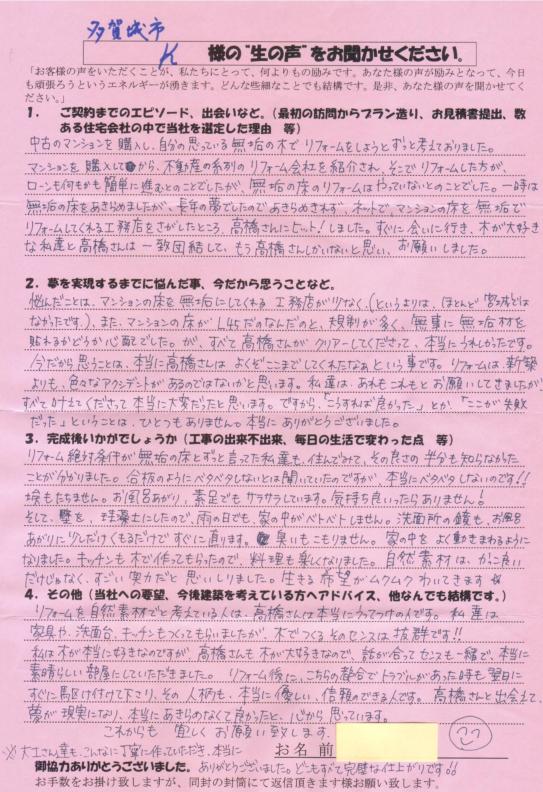 多賀城市
K 様の“生の声”をお聞かせください。
「お客様の声をいただくことが、私たちにとって、何よりもの励みです。あなた様の声が励みとなって、今日
も頑張ろうというエネルギーが湧きます。どんな些細なことでも結構です。是非、あなた様の声を聞かせてく
ださい。」
1. ご契約までのエピソード、出会いなど。（最初の訪問からプラン造り、お見積書提出、数
ある住宅会社の中で当社を選定した理由 等）
中古のマンションを購入し、自分の思っている無垢の木でリフォームをしようとずっと考えておりました。
マンションを購入してから、不動産の系列のリフォーム会社を紹介され、そこでリフォームした方が、
ローンも何もかも簡単に進むとのことでしたが、無垢の床のリフォームはやっていないとのことでした。一時は
無垢の床をあきらめましたが、長年の夢でしたのであきらめきれず、ネットで、マンションの床を無垢で
リフォームしてくれる工務店をさがしたところ、高橋さんにヒット!しました。すぐに会いに行き、木が大好き
な私達と高橋さんは一致団結して、もう高橋さんしかいないと思い、お願いしました。
2. 夢を実現するまでに悩んだ事、今だから思うことなど。
悩んだことは、マンションの床を無垢にしてくれる工務店が少なく、(というよりは、ほとんど宮城では
なかったです。)、また、マンションの床がL45だのなんだのと、規制が多く、無事に無垢材を
貼れるかどうか心配でした。が、すべて高橋さんがクリアーしてくださって、本当にうれしかったです。
今だから思うことは、本当に高橋さんはよくぞここまでしてくれたなぁという事です。リフォームは、新築
よりも、色々なアクシデントがあるのではないかと思います。私達は、あれもこれもとお願いしてきましたが、
すべて叶えてくださって本当に大変だったと思います。ですから、「こうすれば良かった」とか、「ここが失敗
だった」ということは、ひとつもありません。本当にありがとうございました。
3. 完成後いかがでしょうか（工事の出来不出来、毎日の生活で変わった点 等）
リフォーム絶対条件が無垢の床とずっと言ってた私達も、住んでみて、その良さの半分も知らなかった
ことが分かりました。合板のようにベタベタしないとは聞いていたのですが、本当にベタベタしないのです!!
埃もたちません。お風呂あがり、素足でもサラサラしています。気持ち良いったらありません!
そして、壁を、珪藻土にしたので、雨の日でも、家の中がベトベトしません。洗面所の鏡も、お風呂
あがりに少しだけくもるだけですぐに直ります。臭いもこもりません。家の中をよく動きまわるように
なりました。キッチンも木で作ってもらったので、料理も楽しくなりました。自然素材は、かっこ良い
だけじゃなく、すごい実力だと思いしりました。生きる希望がムクムクわいてきます
4. その他（当社への要望、今後建築を考えている方へアドバイス、他なんでも結構です。）
リフォームを自然素材でと考えている人は、高橋さんは本当にうってつけの人です。私達は
家具や、洗面台、キッチンもつくってもらいましたが、木でつくるそのセンスは抜群です!!
私は木が本当に好きなのですが、高橋さんも木が大好きなので、話が合ってセンスも一緒で、本当に
素晴らしい部屋にしていただきました。リフォーム後に、こちらの都合でトラブルがあった時も翌日に
すぐに駆け付けて下さり、その人柄も、本当に優しい、信頼のできる人です。高橋さんと出会えて、
夢が現実になり、本当にあきらめなくて良かったと、心から思っています。
これからも宜しくお願い致します.
お名前
※大工さん達も、こんなに丁寧に作っていただき、本当に
御協力ありがとうございました。ありがとうございました。どこもすべて完璧な仕上がりです!!
お手数をお掛け致しますが、同封の封筒にて返信頂きます様お願い致します。